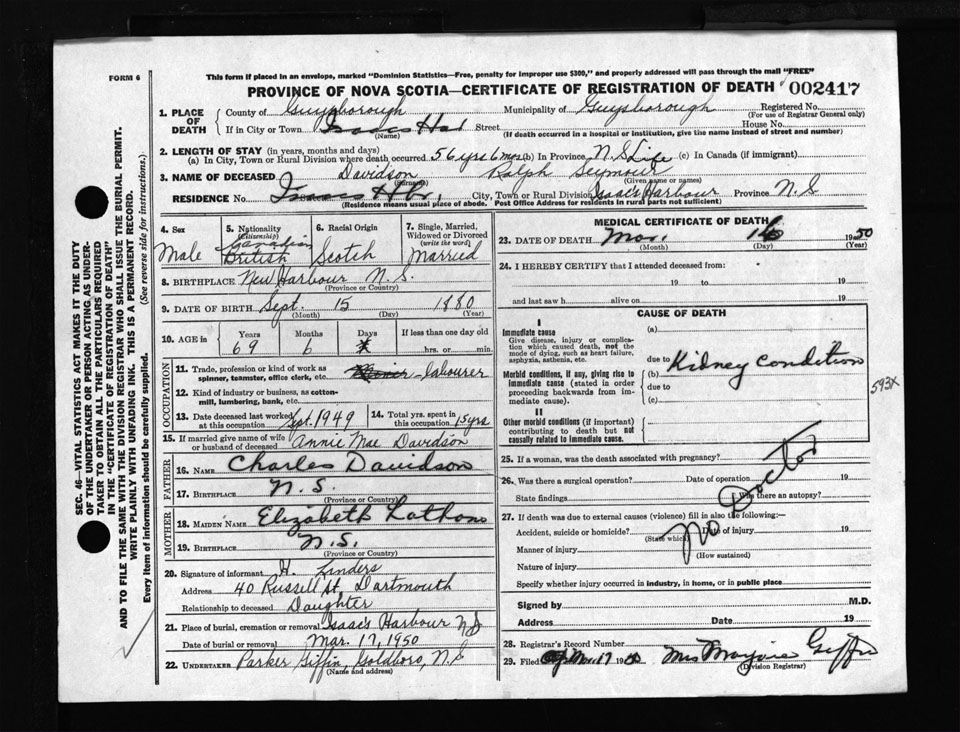 FORM 6
This form if placed in an envelope, marked "Dominion Statistics—Free, penalty for improper use $300," and properly addressed will pass through the mail "FREE"
PROVINCE OF NOVA SCOTIA—CERTIFICATE OF REGISTRATION OF DEATH 002417
1. PLACE OF DEATH County of Guysborough Municipality of Guysborough Registered No.
(For use of Registrar General only)
If in City or Town Isaacs Har Street House No.
(Name) (If death occurred in a hospital or institution, give the name instead of street and number)
2. LENGTH OF STAY (in years, months and days)
(a) In City, Town or Rural Division where death occurred 56 yrs 6 mos (b) In Province N.S. Life (c) In Canada (if immigrant)
3. NAME OF DECEASED Davidson Ralph Seymour
(Surname) (Given name or names)
RESIDENCE No. Isaacs Hbr, City, Town or Rural Division Isaac's Harbour Province N.S
(Residence means usual place of abode. Post Office Address for residents in rural parts not sufficient)
4. Sex Male
5. Nationality (Citizenship) Canadian British
6. Racial Origin Scotch
7. Single, Married, Widowed or Divorced (write the word) Married
8. BIRTHPLACE New Harbour N.S.
(Province or Country)
9. DATE OF BIRTH Sept. 15 1880
(Month) (Day) (Year)
10. AGE in Years Months Days If less than one day old
69 6 hrs. or min.
OCCUPATION
11. Trade, profession or kind of work as spinner, teamster, office clerk, etc. labourer
12. Kind of industry or business, as cotton-mill, lumbering, bank, etc.
13. Date deceased last worked at this occupation Sept. 1949
14. Total yrs. spent in this occupation 15 yrs
15. If married give name of wife or husband of deceased Annie Mae Davidson
FATHER
16. NAME Charles Davidson
17. BIRTHPLACE N.S.
(Province or Country)
MOTHER
18. MAIDEN NAME Elizabeth
19. BIRTHPLACE N.S.
(Province or Country)
20. Signature of informant H. Linders
Address 40 Russell St. Dartmouth
Relationship to deceased Daughter
21. Place of burial, cremation or removal Isaac's Harbour N.S
Date of burial or removal Mar. 17, 1950
22. UNDERTAKER Parker Giffin, Goldboro, N.S
(Name and address)
MEDICAL CERTIFICATE OF DEATH
23. DATE OF DEATH Mar. 16 1950
(Month) (Day) (Year)
24. I HEREBY CERTIFY that I attended deceased from:
19 to 19
and last saw h alive on 19
CAUSE OF DEATH
I
Immediate cause
Give disease, injury or complication which caused death, not the mode of dying, such as heart failure, asphyxia, asthenia, etc.
Morbid conditions, if any, giving rise to immediate cause (stated in order proceeding backwards from immediate cause).
II
Other morbid conditions (if important) contributing to death but not causally related to immediate cause.
(a)
due to
(b) Kidney Condition
due to
(c)
593X
25. If a woman, was the death associated with pregnancy?
26. Was there a surgical operation? Date of operation 19
State findings Was there an autopsy?
27. If death was due to external causes (violence) fill in also the following:—
Accident, suicide or homicide? Date of injury 19
(State which)
Manner of injury
(How sustained)
Nature of injury
No Doctor
Specify whether injury occurred in industry, in home, or in public place
Signed by M.D.
Address Date 19
28. Registrar's Record Number
29. Filed Mar. 17 1950 Mrs Marjorie Giffin
(Division Registrar)
SEC. 46—VITAL STATISTICS ACT MAKES IT THE DUTY
OF THE UNDERTAKER OR PERSON ACTING AS UNDER-
TAKER TO OBTAIN ALL THE PARTICULARS REQUIRED
IN THE "CERTIFICATE OF REGISTRATION OF DEATH"
AND TO FILE THE SAME WITH THE DIVISION REGISTRAR WHO SHALL ISSUE THE BURIAL PERMIT.
WRITE PLAINLY WITH UNFADING INK. THIS IS A PERMANENT RECORD.
Every item of information should be carefully supplied. (See reverse side for instructions.)